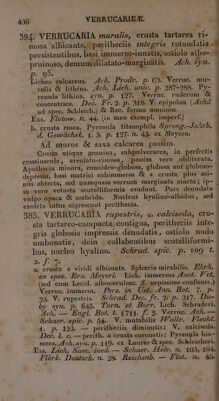 436 VERRUCARIEÆ.
384. VERRUCARIA muralis, crusta tartarea ri-
mosa albicante, peritheciis integris rotundatis
persistentibus, basi immerso-innatis, ostiolo albo-
pruinoso, demum dilatato-marginatis. Ach. syn.
p. 95.
Lichen calcareus. Ach. Prodr. p. 63. Verruc. mu-
ralis & lithina. Ach. Lich. univ. p. 287-288. Py-
renula lithina. syn. p. 127. Verruc. ruderum &
concentrica. Dec. Fr. 2. p. 318. V. epipolæa (Ach.?
ad spec. Schleich.) & Roc. forum omnium.
Exs. Flotow. n. 44. (in meo exempl. imperf.)
b. crusta rosea. Pyrenula titanophila Spreng. Jahrb.
d. Gewächsk. 1. 3. p. 127. n. 44. ex Meyero.
Ad muros & saxa calcarea passim.
Crusta utique genuina, subpulverea, in perfectis
crassiuscula, areolato-rimosa, passim vero obliterata.
Apothecia minora, conoideo-globosa, globosa aut globoso-
depressa, basi matrici subimmersa & a crusta plus mi-
nus obtecta, sed numquam verrucis mentitis cincta; ip-
sa vero vetusta scutelliformia evadunt. Pars denudata
vulgo opaca & scabrida. Nucleus hyalino-albidus, sed
exoleto intus nigrescunt perithecia.
385. VERRUCARIA rupestris, v. calciseda, cru-
sta tartareo-compacta contigua, peritheciis inte-
gris globosis impressis denudatis, ostiolo nudo
umbonatis, dein collabentibus scutelliformi-
bus, nucleo hyalino. Schrad. spic. p. 109 t.
2. f. 7.
a. crusta e viridi albicante. Spheria mirabilis. Ehrh.
ex spec. Env. Meyeri. Lich. immersus Auct. Vet.
(sed cum Lecid. albocaerulesc. β. sepissime confusus.)
Verruc. immersa. Pers. in Ust. Ann. Bot. 7. p.
23. V. rupestris. Schrad. Dec. fr. 2. p. 317. De-
by syn. p. 645. Turn. et Borr. Lich. Schraderi.
Ach. — Engl. Bot. t. 1711. f. 2. Verruc. Ach. —
Schaer. spic. p. 54. V. mutabilis Wallr. Flecht.
1. p. 123. — peritheciis diminutis: V. calciseda.
Dec. l. c. — perith. a crusta coronatis: Pyrenula hia-
scens. Ach. syn. p. 119. ex Laurer & spec. Schleicheri.
Exs. Lich. Suec. ined. — Schaer. Helv. n. 103, 104.
Flörk. Deutsch. n. 28. Reichenb. — Flot. n. 46.